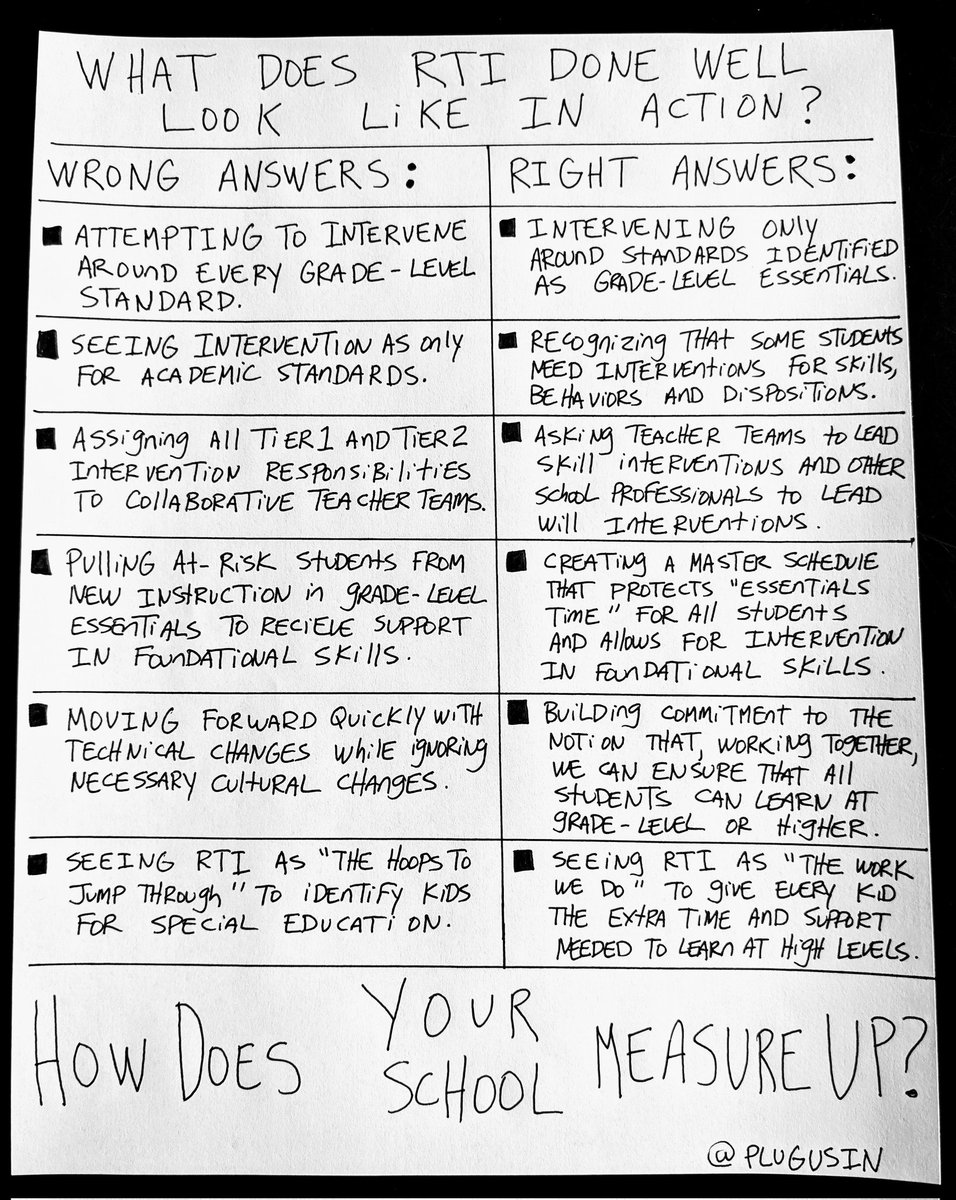 WHAT DOES RTI DONE WELL
LOOK LIKE IN ACTION?
WRONG ANSWERS:
RIGHT ANSWERS:
ATTEMPTING TO INTERVENE
AROUND EVERY GRADE-LEVEL
STANDARD.
INTERVENING ONLY
AROUND STANDARDS IDENTIFIED
AS GRADE-LEVEL ESSENTIALS.
SEEING INTERVENTION AS ONLY
FOR ACADEMIC STANDARDS.
RECOGNIZING THAT SOME STUDENTS
NEED INTERVENTIONS FOR SKILLS,
BEHAVIORS AND DISPOSITIONS.
ASSIGNING ALL TIER 1 AND TIER 2
INTERVENTION RESPONSIBILITIES
TO COLLABORATIVE TEACHER TEAMS.
ASKING TEACHER TEAMS TO LEAD
SKILL INTERVENTIONS AND OTHER
SCHOOL PROFESSIONALS TO LEAD
WILL INTERVENTIONS.
PULLING AT-RISK STUDENTS FROM
NEW INSTRUCTION IN GRADE-LEVEL
ESSENTIALS TO RECIEVE SUPPORT
IN FOUNDATIONAL SKILLS.
CREATING A MASTER SCHEDULE
THAT PROTECTS "ESSENTIALS
TIME" FOR ALL STUDENTS
AND ALLOWS FOR INTERVENTION
IN FOUNDATIONAL SKILLS.
MOVING FORWARD QUICKLY WITH
TECHNICAL CHANGES WHILE IGNORING
NECESSARY CULTURAL CHANGES.
BUILDING COMMITMENT TO THE
NOTION THAT, WORKING TOGETHER,
WE CAN ENSURE THAT ALL
STUDENTS CAN LEARN AT
GRADE-LEVEL OR HIGHER.
SEEING RTI AS "THE HOOPS TO
JUMP THROUGH" TO IDENTIFY KIDS
FOR SPECIAL EDUCATION.
SEEING RTI AS "THE WORK
WE DO" TO GIVE EVERY KID
THE EXTRA TIME AND SUPPORT
NEEDED TO LEARN AT HIGH LEVELS.
HOW DOES YOUR SCHOOL MEASURE UP?
@PLUGUSIN